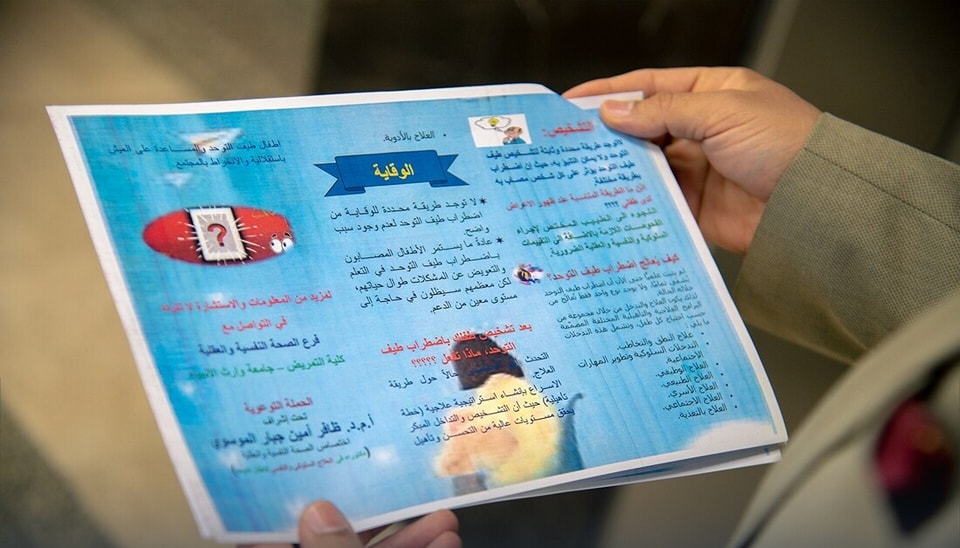 التشخيص:
لاتوجد طريقة محددة وثابتة لتشخيص طيف
التوحد ولا يمكن التنبؤ به، حيث ان اضطراب
طيف التوحد يؤثر على كل شخص مصاب به
بطريقة مختلفة.
اذن ما الطريقة المناسبة عند ظهور الاعراض
لدى طفلي ؟؟؟؟
الطبيب المختص لإجراء
الفحوصات اللازمة بالإضافة الى التقييمات
السلوكية والنفسية والعقلية الضرورية.
كيف يعالج اضطراب طيف التوحد؟
لم يثبت علمياً حتى الآن أن اضطراب طيف التوحد
يشفى تماماً، ولا يوجد نوع واحد فقط يُعالج من
خلاله الحالة.
لذلك يكون العلاج والتدخل من خلال مجموعة من
البرامج العلاجية والتأهيلية المختلفة المصممة
حسب احتياج كل طفل، وتشمل هذه التدخلات
ما يلي:
• علاج النطق والتخاطب.
• التدخلات السلوكية وتطوير المهارات
الاجتماعية.
• العلاج الوظيفي.
• العلاج الطبيعي.
• العلاج الأسري.
• العلاج الاجتماعي.
• العلاج بالتغذية.
• العلاج بالأدوية.
الوقاية
* لا توجد طريقة محددة للوقاية من
اضطراب طيف التوحد لعدم وجود سبب
واضح.
* عادةً ما يستمر الأطفال المصابون
باضطراب طيف التوحد في التعلم
والتعويض عن المشكلات طوال حياتهم،
لكن معظمهم سيظلون في حاجة إلى
مستوى معين من الدعم.
بعد تشخيص طفلك باضطراب طيف
التوحد، ماذا تفعل ؟؟؟؟؟
التحدث حالاً حول طريقة
العلاج.
الاسراع بإنشاء استراتيجية علاجية (خطة
تأهيلية) حيث أن التشخيص والتداخل المبكر
يحقق مستويات عالية من التحسن وتأهيل
اطفال طيف التوحد والمساعدة على العيش
باستقلالية والانخراط بالمجتمع
?
لمزيد من المعلومات والاستشارة لا تتردد
في التواصل مع
فرع الصحة النفسية والعقلية
كلية التمريض – جامعة وارث الأنبياء
الحملة التوعوية
تحت اشراف
أ.م.د. ظافر أمين جبار الموسوي
اختصاص الصحة النفسية والعقلية
(دكتوراه في العلاج السلوكي والنفسي